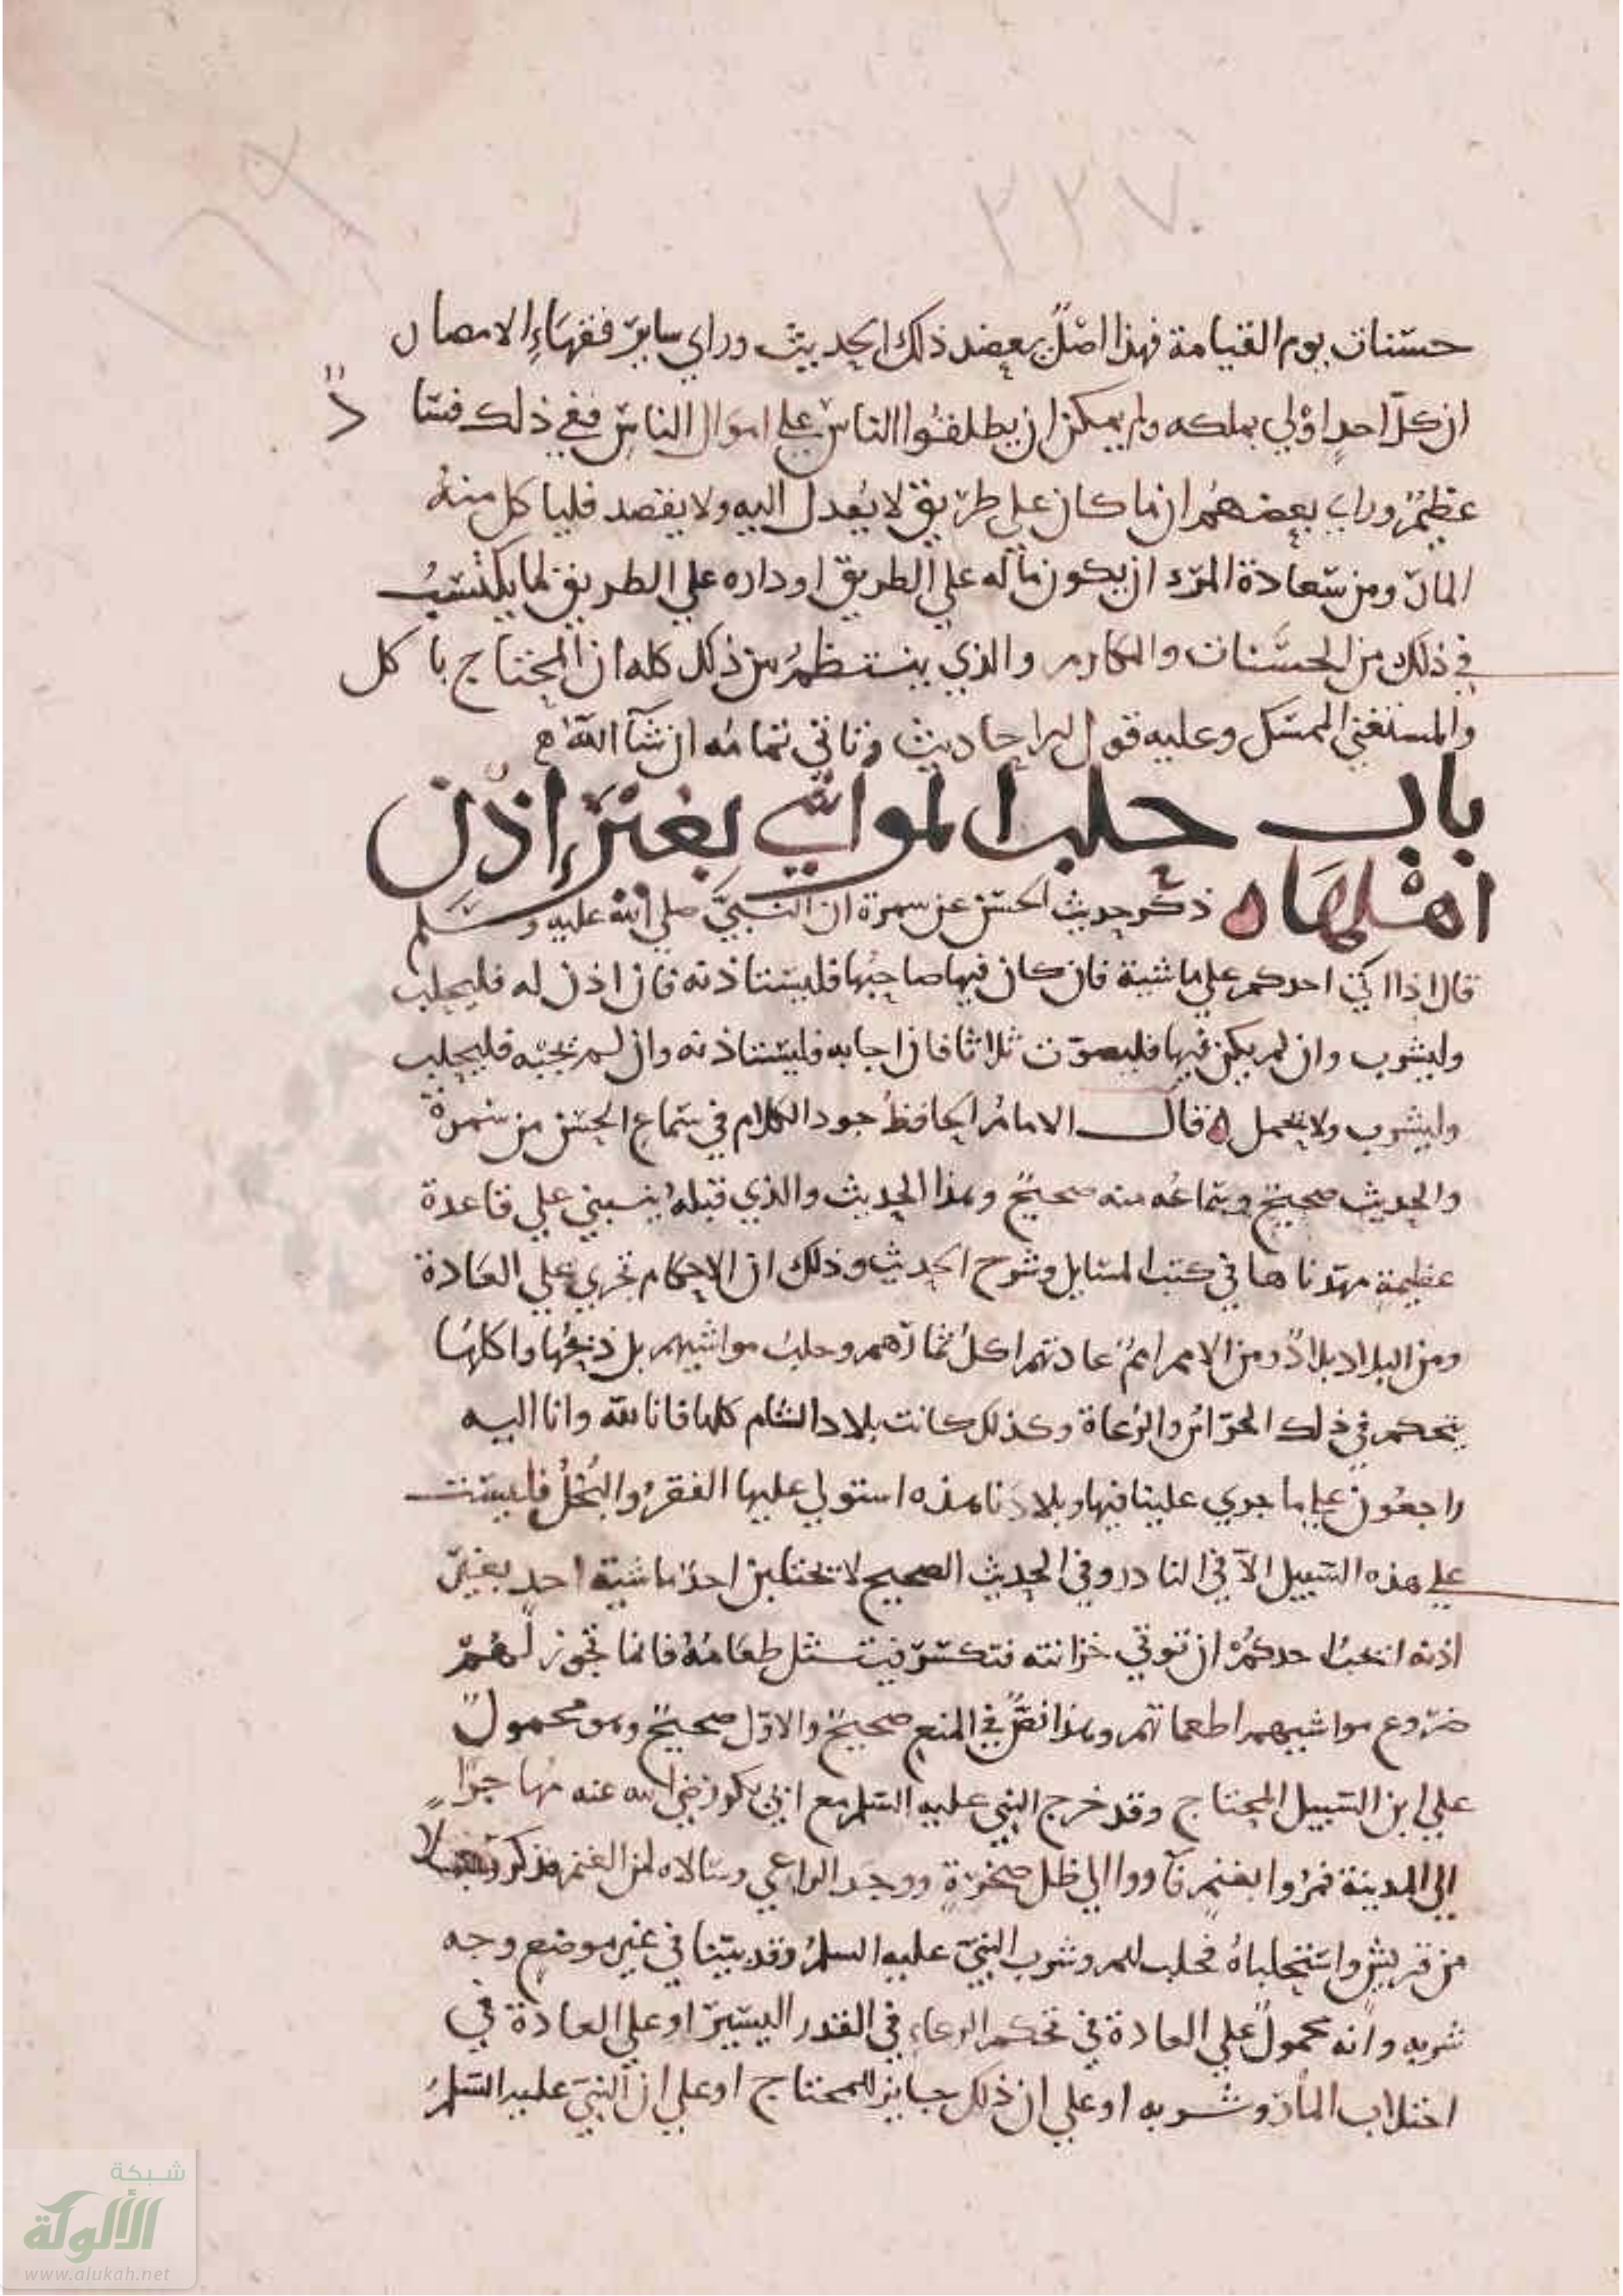 ٢٢٧
حسنات يوم القيامة فهذا اصل يعضد ذلك الحديث وراي ساير فقهاء الامصار
ان كل احد اولي بملكه ولم يمكن ان يطلقوا الناس علي اموال الناس ففي ذلك فسا د
عظيم وراي بعضهم ان ما كان علي طريق لا يعدل اليه ولا يقصد فلياكل منه
المار ومن سعادة المرء ان يكون ماله علي الطريق او داره علي الطريق لما يكتسب
في ذلك من الحسنات والمكارم والذي ينتظم من ذلك كله ان المحتاج ياكل
والمستغني الممسك وعليه قول الاحاديث وتاتي تمامه ان شآ الله
باب حلب المواشي بغير اذن
اهلها ه ذكر حديث الحسن عن سمرة ان النبي صلي الله عليه وسلم
قال اذا اتي احدكم علي ماشية فان كان فيها صاحبها فليستاذنه فان اذن له فليحلب
وليشرب وان لم يكن فيها فليصوت ثلاثا فان اجابه فليستاذنه وان لم يجبه فليحلب
وليشرب ولا يحمل ه قال الامام الحافظ جود الكلام في سماع الحسن من سمرة
والحديث صحيح وسماعه منه صحيح وهذا الحديث والذي قبله ينبني علي قاعدة
عظيمة مهدناها في كتب المسايل وشرح الحديث وذلك ان الاحكام تجري علي العادة
ومن البلاد بلاد ومن الامم امم عادتهم اكل ثمارهم وحلب مواشيهم بل ذبحها واكلها
يتحكم في ذلك الحراثر والرعاة وكذلك كانت بلاد الشام كلها فانا لله وانا اليه
راجعون علي ما جري علينا فيها وبلادنا هذه استولي عليها الفقر والبخل فليست
علي هذه السبيل الا في النادر وفي الحديث الصحيح لا تحتلبن احد ماشية احد بغير
اذنه ايحب احدكم ان توتي خزانته فتكسر فينتثل طعامه فانما تحوز لهم
ضروع مواشيهم اطعماتهم وهذا نص في المنع صحيح والاول صحيح وهو محمول
علي ابن السبيل المحتاج وقد خرج النبي عليه السلم مع ابي بكر رضي الله عنه مهاجرا
الي المدينة فمروا بغنم فآووا الي ظل صخرة ووجد الراعي وسالاه لمن الغنم فذكر رجلا
من قريش واستحلباه فحلب لهم وشرب النبي عليه السلم وقد بينا في غير موضع وجه
شربه وانه محمول علي العادة في تحكم الرعاء في القدر اليسير او علي العادة في
احتلاب المار وشربه او علي ان ذلك جايز للمحتاج او علي ان النبي عليه السلم
شبكة
الألوكة
www.alukah.net